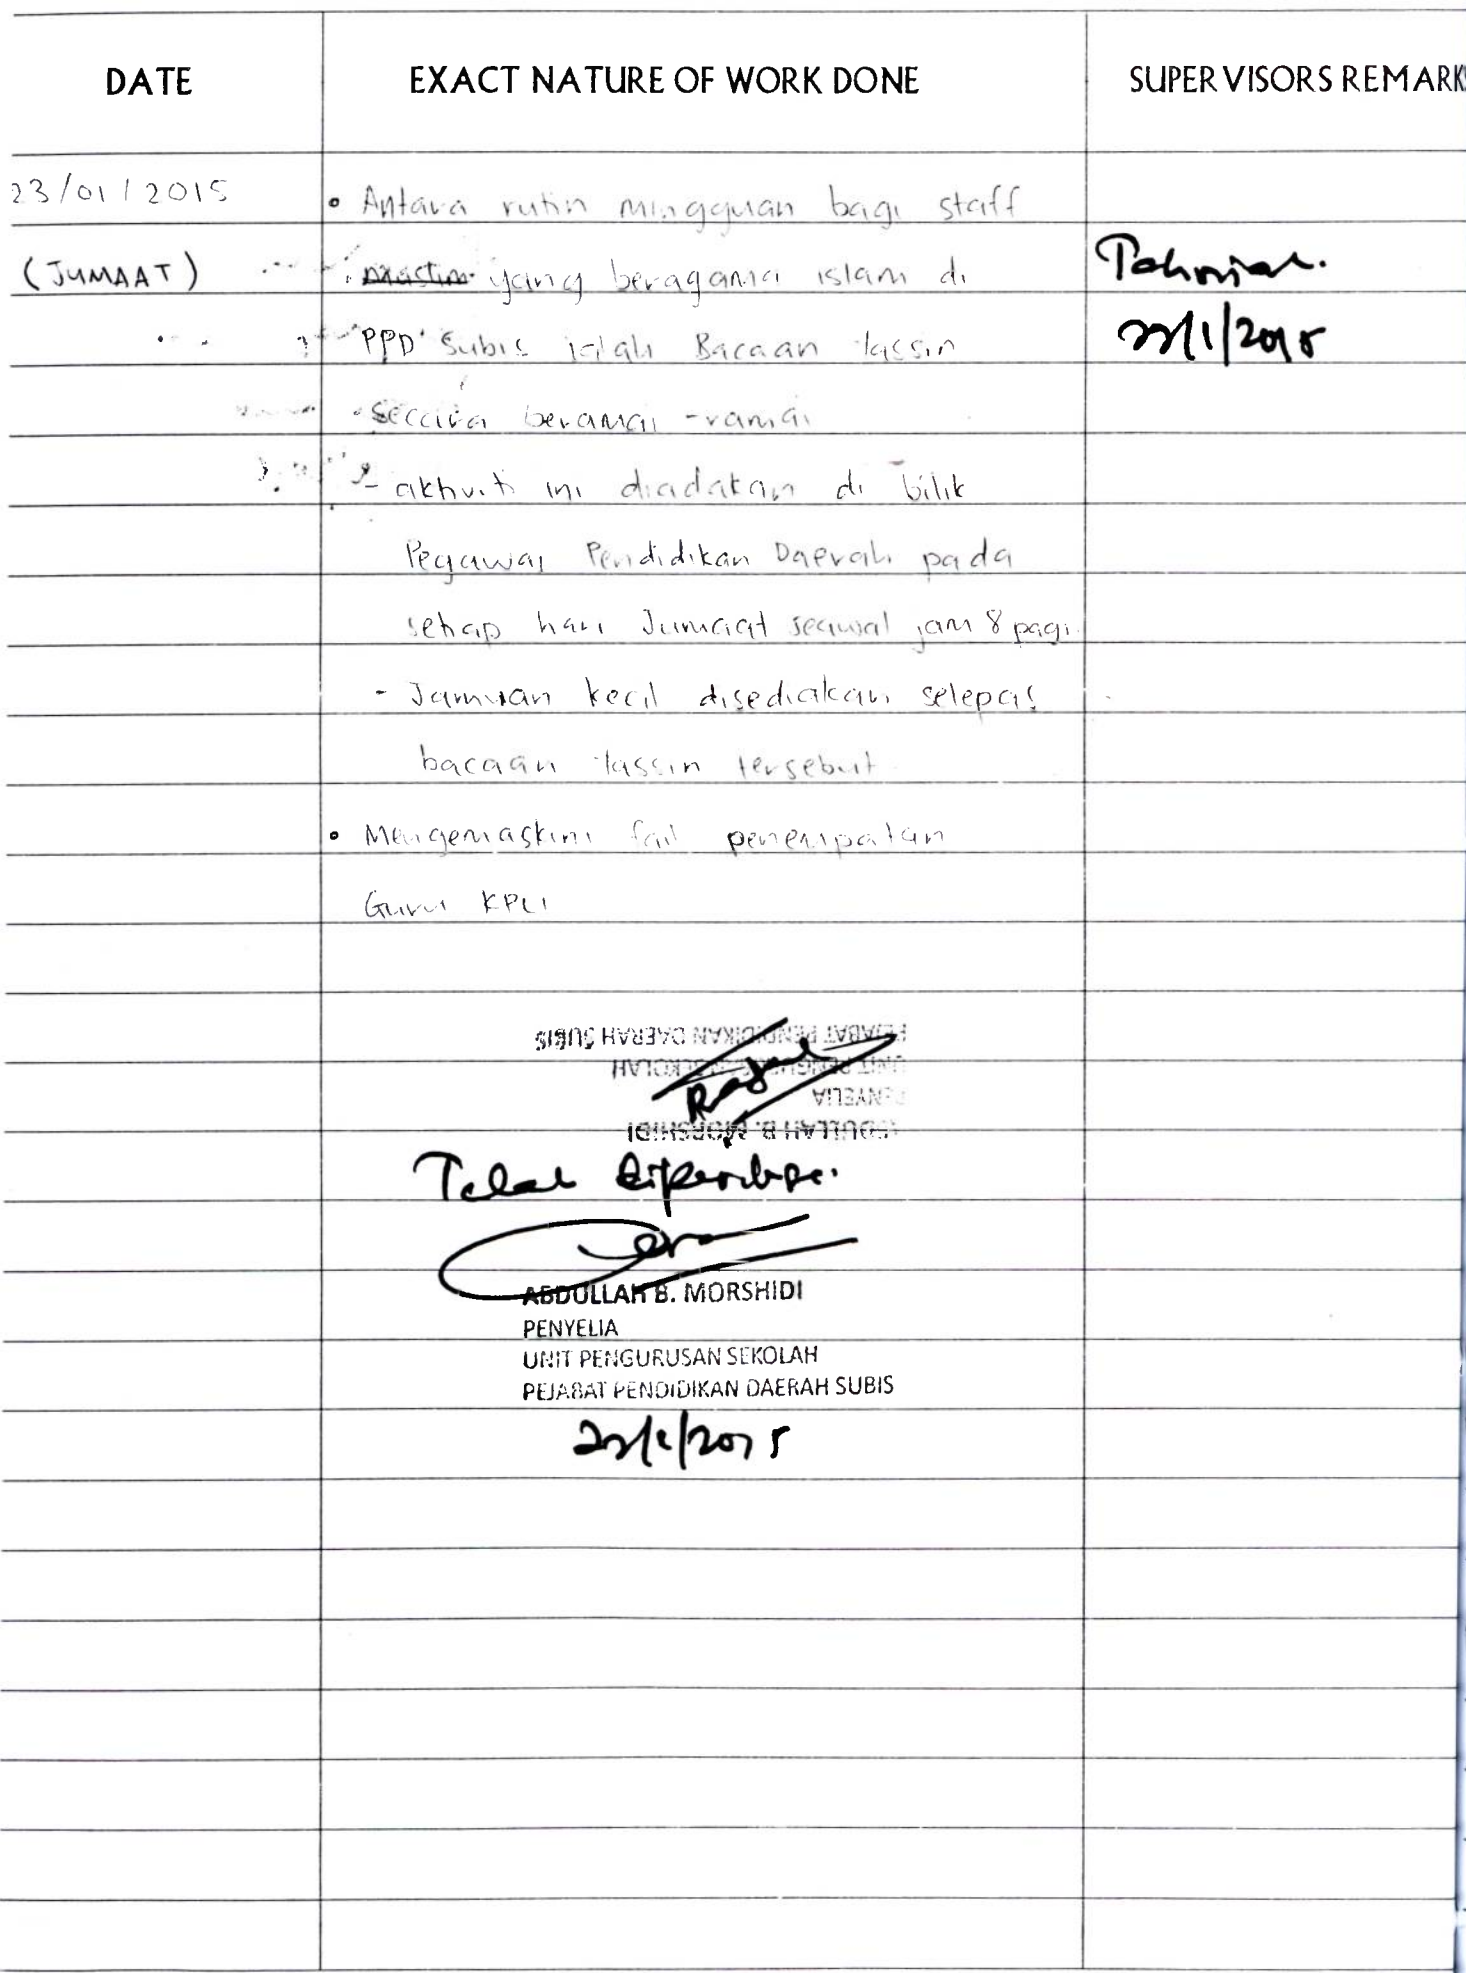 DATE EXACT NATURE OF WORK DONE SUPERVISORS REMARKS
23/01/2015
(JUMAAT)
• Antara rutin mingguan bagi staff
yang beragama islam di
PPD Subis ialah Bacaan Yassin
secara beramai-ramai
- aktiviti ini diadakan di bilik
Pegawai Pendidikan Daerah pada
setiap hari Jumaat seawal jam 8 pagi.
- Jamuan kecil disediakan selepas
bacaan Yassin tersebut
• Mengemaskini fail penempatan
Guru KPLI
PEJABAT PENDIDIKAN DAERAH SUBIS
PENYELIA
ABDULLAH B. MORSHIDI
Telah diperiksa.
ABDULLAH B. MORSHIDI
PENYELIA
UNIT PENGURUSAN SEKOLAH
PEJABAT PENDIDIKAN DAERAH SUBIS
23/1/2015
23/1/2015